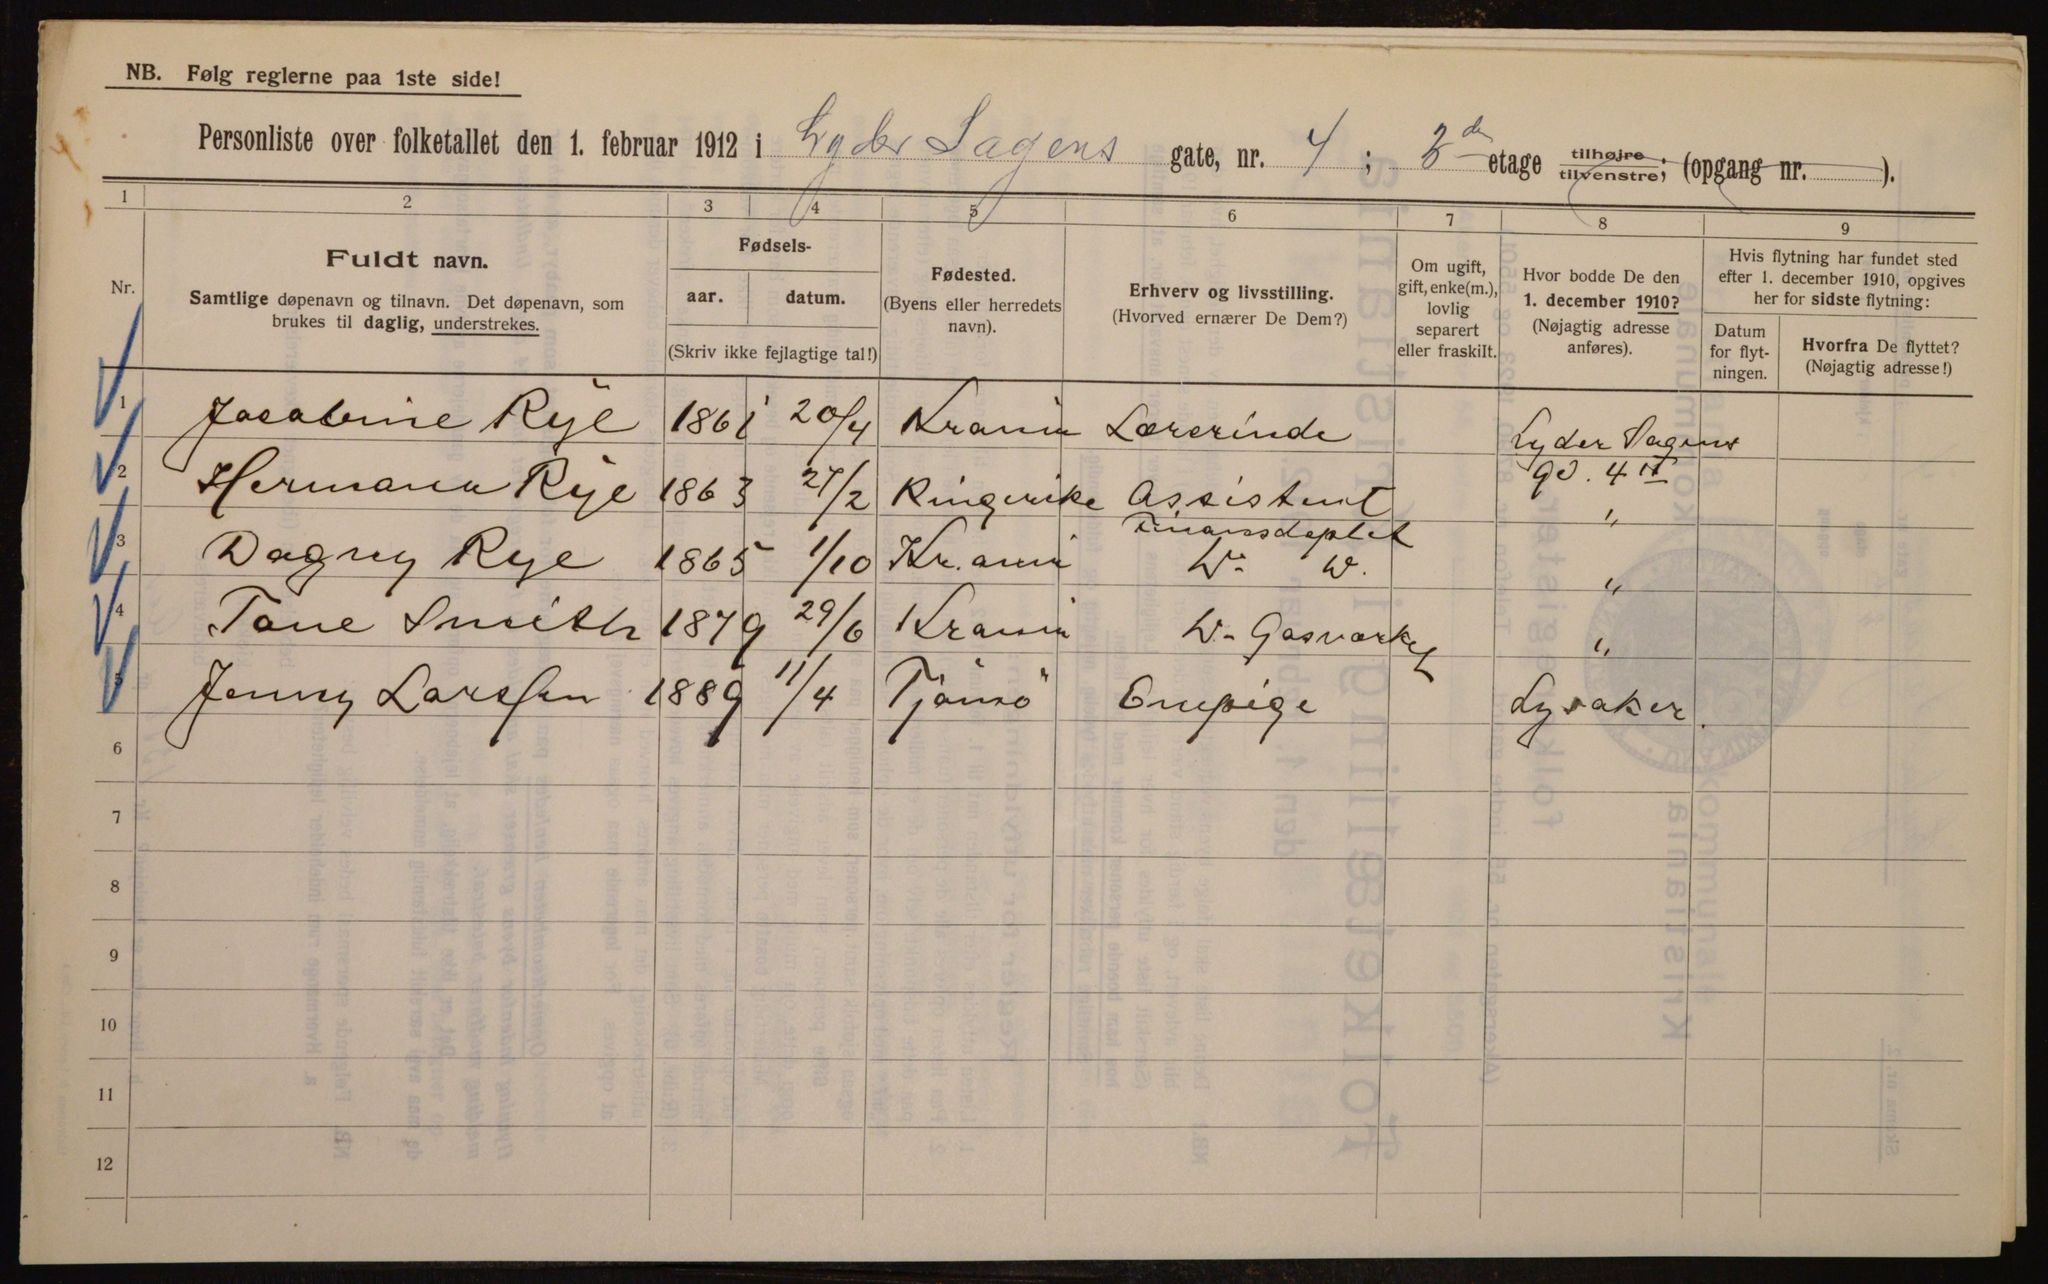 NB. Følg reglerne paa 1ste side!
Personliste over folketallet den 1. februar 1912 i Lyder Sagens gate, nr. 4 ; etage tilhøjre, tilvenstre, (opgang nr. ).
1 2 3 4 5 6 7 8 9
Nr.
Fuldt navn.
Samtlige døpenavn og tilnavn. Det døpenavn, som
brukes til daglig, understrekes.
Fødsels-
aar. datum.
(Skriv ikke fejlagtige tal!)
Fødested.
(Byens eller herredets
navn).
Erhverv og livsstilling.
(Hvorved ernærer De Dem?)
Om ugift,
gift, enke(m.),
lovlig
separert
eller fraskilt.
Hvor bodde De den
1. december 1910?
(Nøjagtig adresse
anføres).
Hvis flytning har fundet sted
efter 1. december 1910, opgives
her for sidste flytning:
Datum
for flyt-
ningen.
Hvorfra De flyttet?
(Nøjagtig adresse!)
1 Jacobine Rye 1861 20/4 Krania Lærerinde Lyder Sagens
gd. 4 II
2 Hermana Rye 1863 27/2 Ringerike Assistent "
Finansdeptet
3 Dagny Rye 1865 1/10 Kr.ania Do Do. "
4 Tone Smith 1879 29/6 Krania Do Gasværket "
5 Jenny Larssen 1889 11/4 Tjømö Enepige Lysaker.
6
7
8
9
10
11
12